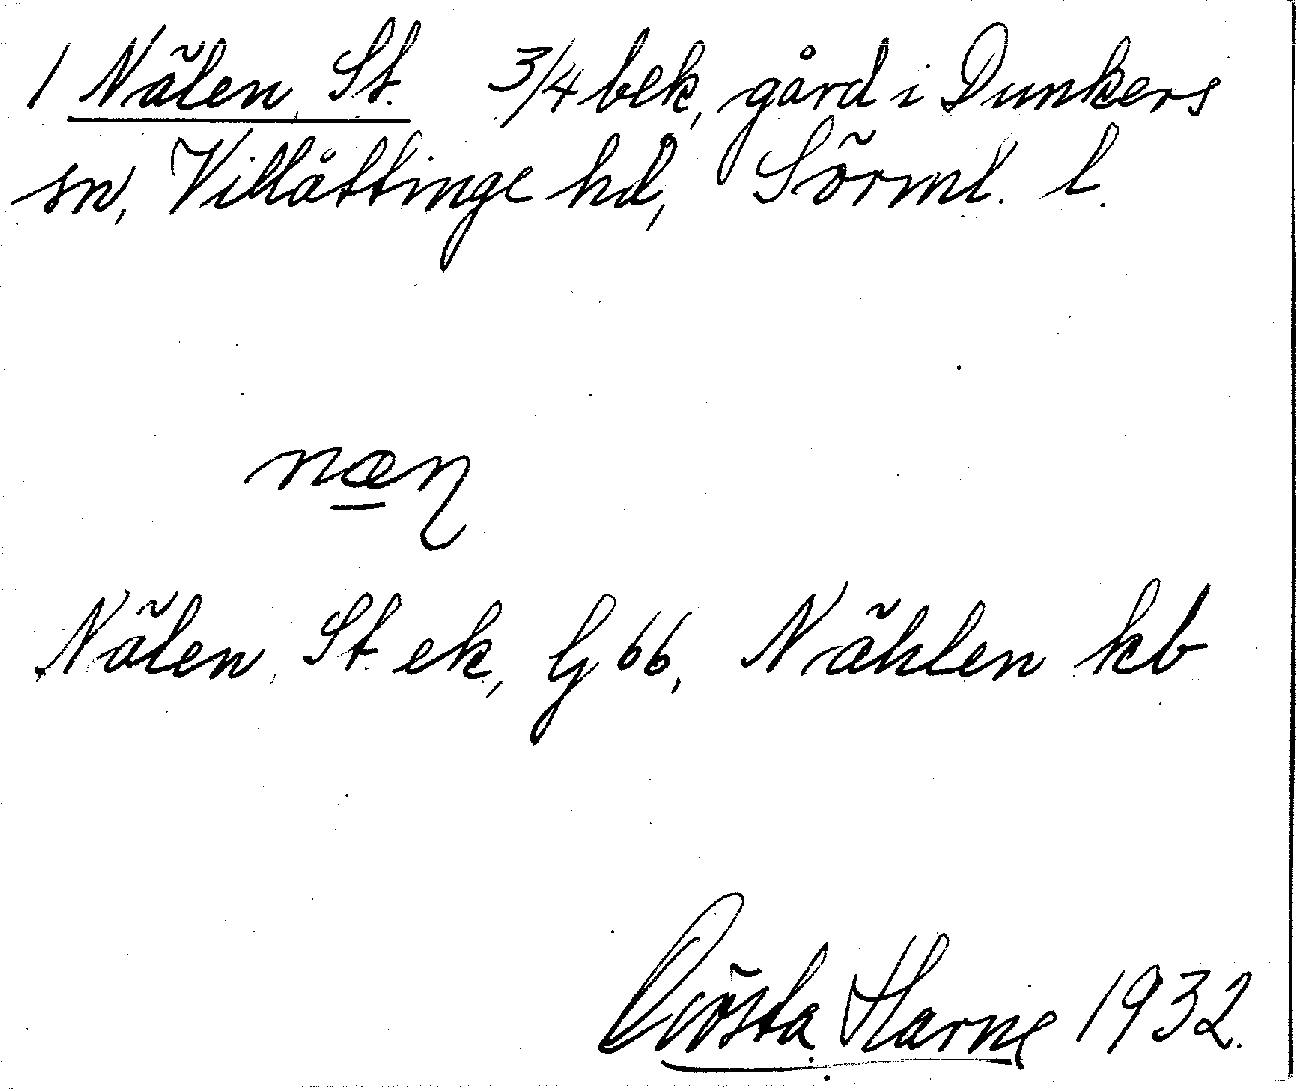 1 Nälen, St. 3/4 blk, gård i Dunkers
sn, Villåttinge hd, Sörml. l.
næn
Nälen, St. ek, G 66, Nählen kb
Gösta Harne 1932.